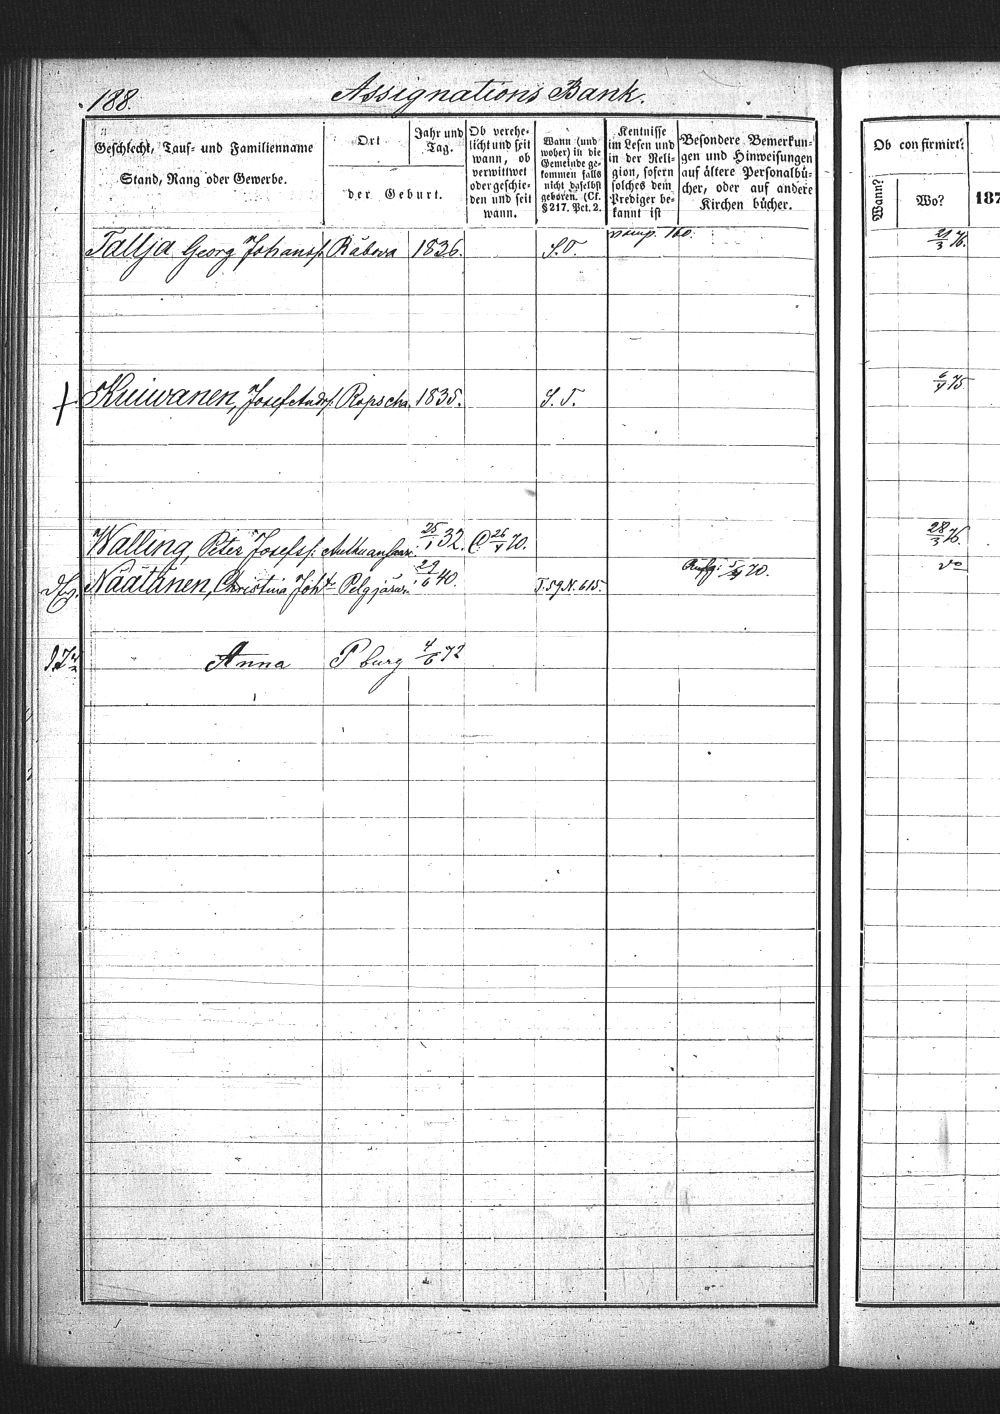 188.
Assignations Bank.
Geschlecht, Tauf- und Familienname
Stand, Rang oder Gewerbe.
Ort
Jahr und
Tag.
der Geburt.
Ob verehe-
licht und seit
wann, ob
verwittwet
oder geschie-
den und seit
wann.
Wann (und
woher) in die
Gemeinde ge-
kommen falls
nicht daselbst
geboren. (Cf.
§ 217. Pct. 2.
Kentnisse
im Lesen und
in der Reli-
gion, sofern
solches dem
Prediger be-
kannt ist
Besondere Bemerkun-
gen und Hinweisungen
auf ältere Personalbü-
cher, oder auf andere
Kirchen bücher.
Ob confirmirt?
Wann?
Wo?
187
Tallja Georg Johanss. Räbova 1836. S.T. 160. 21/3 76.
Kuiwanen, Josef Andr. Ropscha. 1835. S.T. 6/4 75
Walling, Peter Josefss: 25/1 32. 26/4 70. 28/3 76.
Näätänen, Christina Joh. 29/6 40. T.59 N.615. 70. do
Anna Pburg 4/6 72